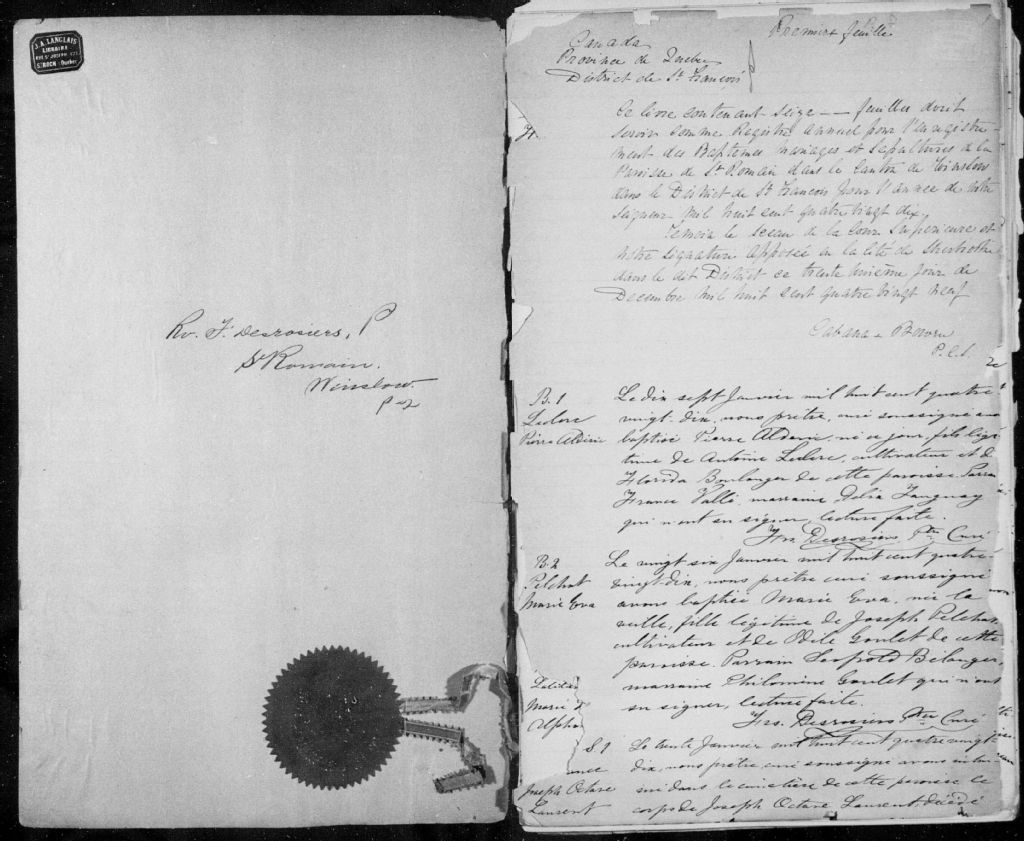 J. A. LANGLAIS
LIBRAIRE
RUE St JOSEPH 177
St ROCH - Québec
Rv. F. Desrosiers, P
St Romain.
Winslow.
P Q
Premier feuille
Canada
Province de Quebec
District de St François
Ce livre contenant seize feuilles devit
servir comme Registre annuel pour l'enregistre-
ment des Baptemes mariages et sepultures de la
Paroisse de St Romain dans le Canton de Winslow
dans le District de St François pour l'annee de notre
Seigneur mil huit cent quatre vingt dix,
Temoin le sceau de la Cour Superieure et
notre signature apposée en la Cité de Sherbrooke
dans le dit District ce trente unieme jour de
Decembre mil huit cent quatre vingt neuf
Cabana & Bowen
P.C.S.
B. 1
Leclerc
Pierre Aldéric
Le dix sept Janvier mil huit cent quatre
vingt-dix, nous prêtre, curé soussigné avons
baptisé Pierre Alderic, né ce jour, fils légi
time de Antoine Leclerc, cultivateur et de
Florida Boulanger de cette paroisse. Parrain
France Vallé, marraine Délia Tanguay
qui n'ont su signer, lecture faite.
Frs. Desrosiers Ptre Curé
B. 2
Pelchat
Marie Eva
Le vingt six Janvier mil huit cent quatre-
vingt-dix, nous prêtre curé soussigné
avons baptisé Marie Eva, née la
veille, fille légitime de Joseph Pelchat
cultivateur et de Odile Goulet de cette
paroisse. Parrain Léopold Bélanger,
marraine Philomine Goulet qui n'ont
su signer, lecture faite.
Frs. Desrosiers Ptre Curé
Marie
Alpho
S. 1
Joseph Octave
Laurent
Le trente Janvier mil huit cent quatre vingt
dix, nous prêtre, curé soussigné avons inhu
mé dans le cimetière de cette paroisse le
corps de Joseph Octave Laurent, décédé